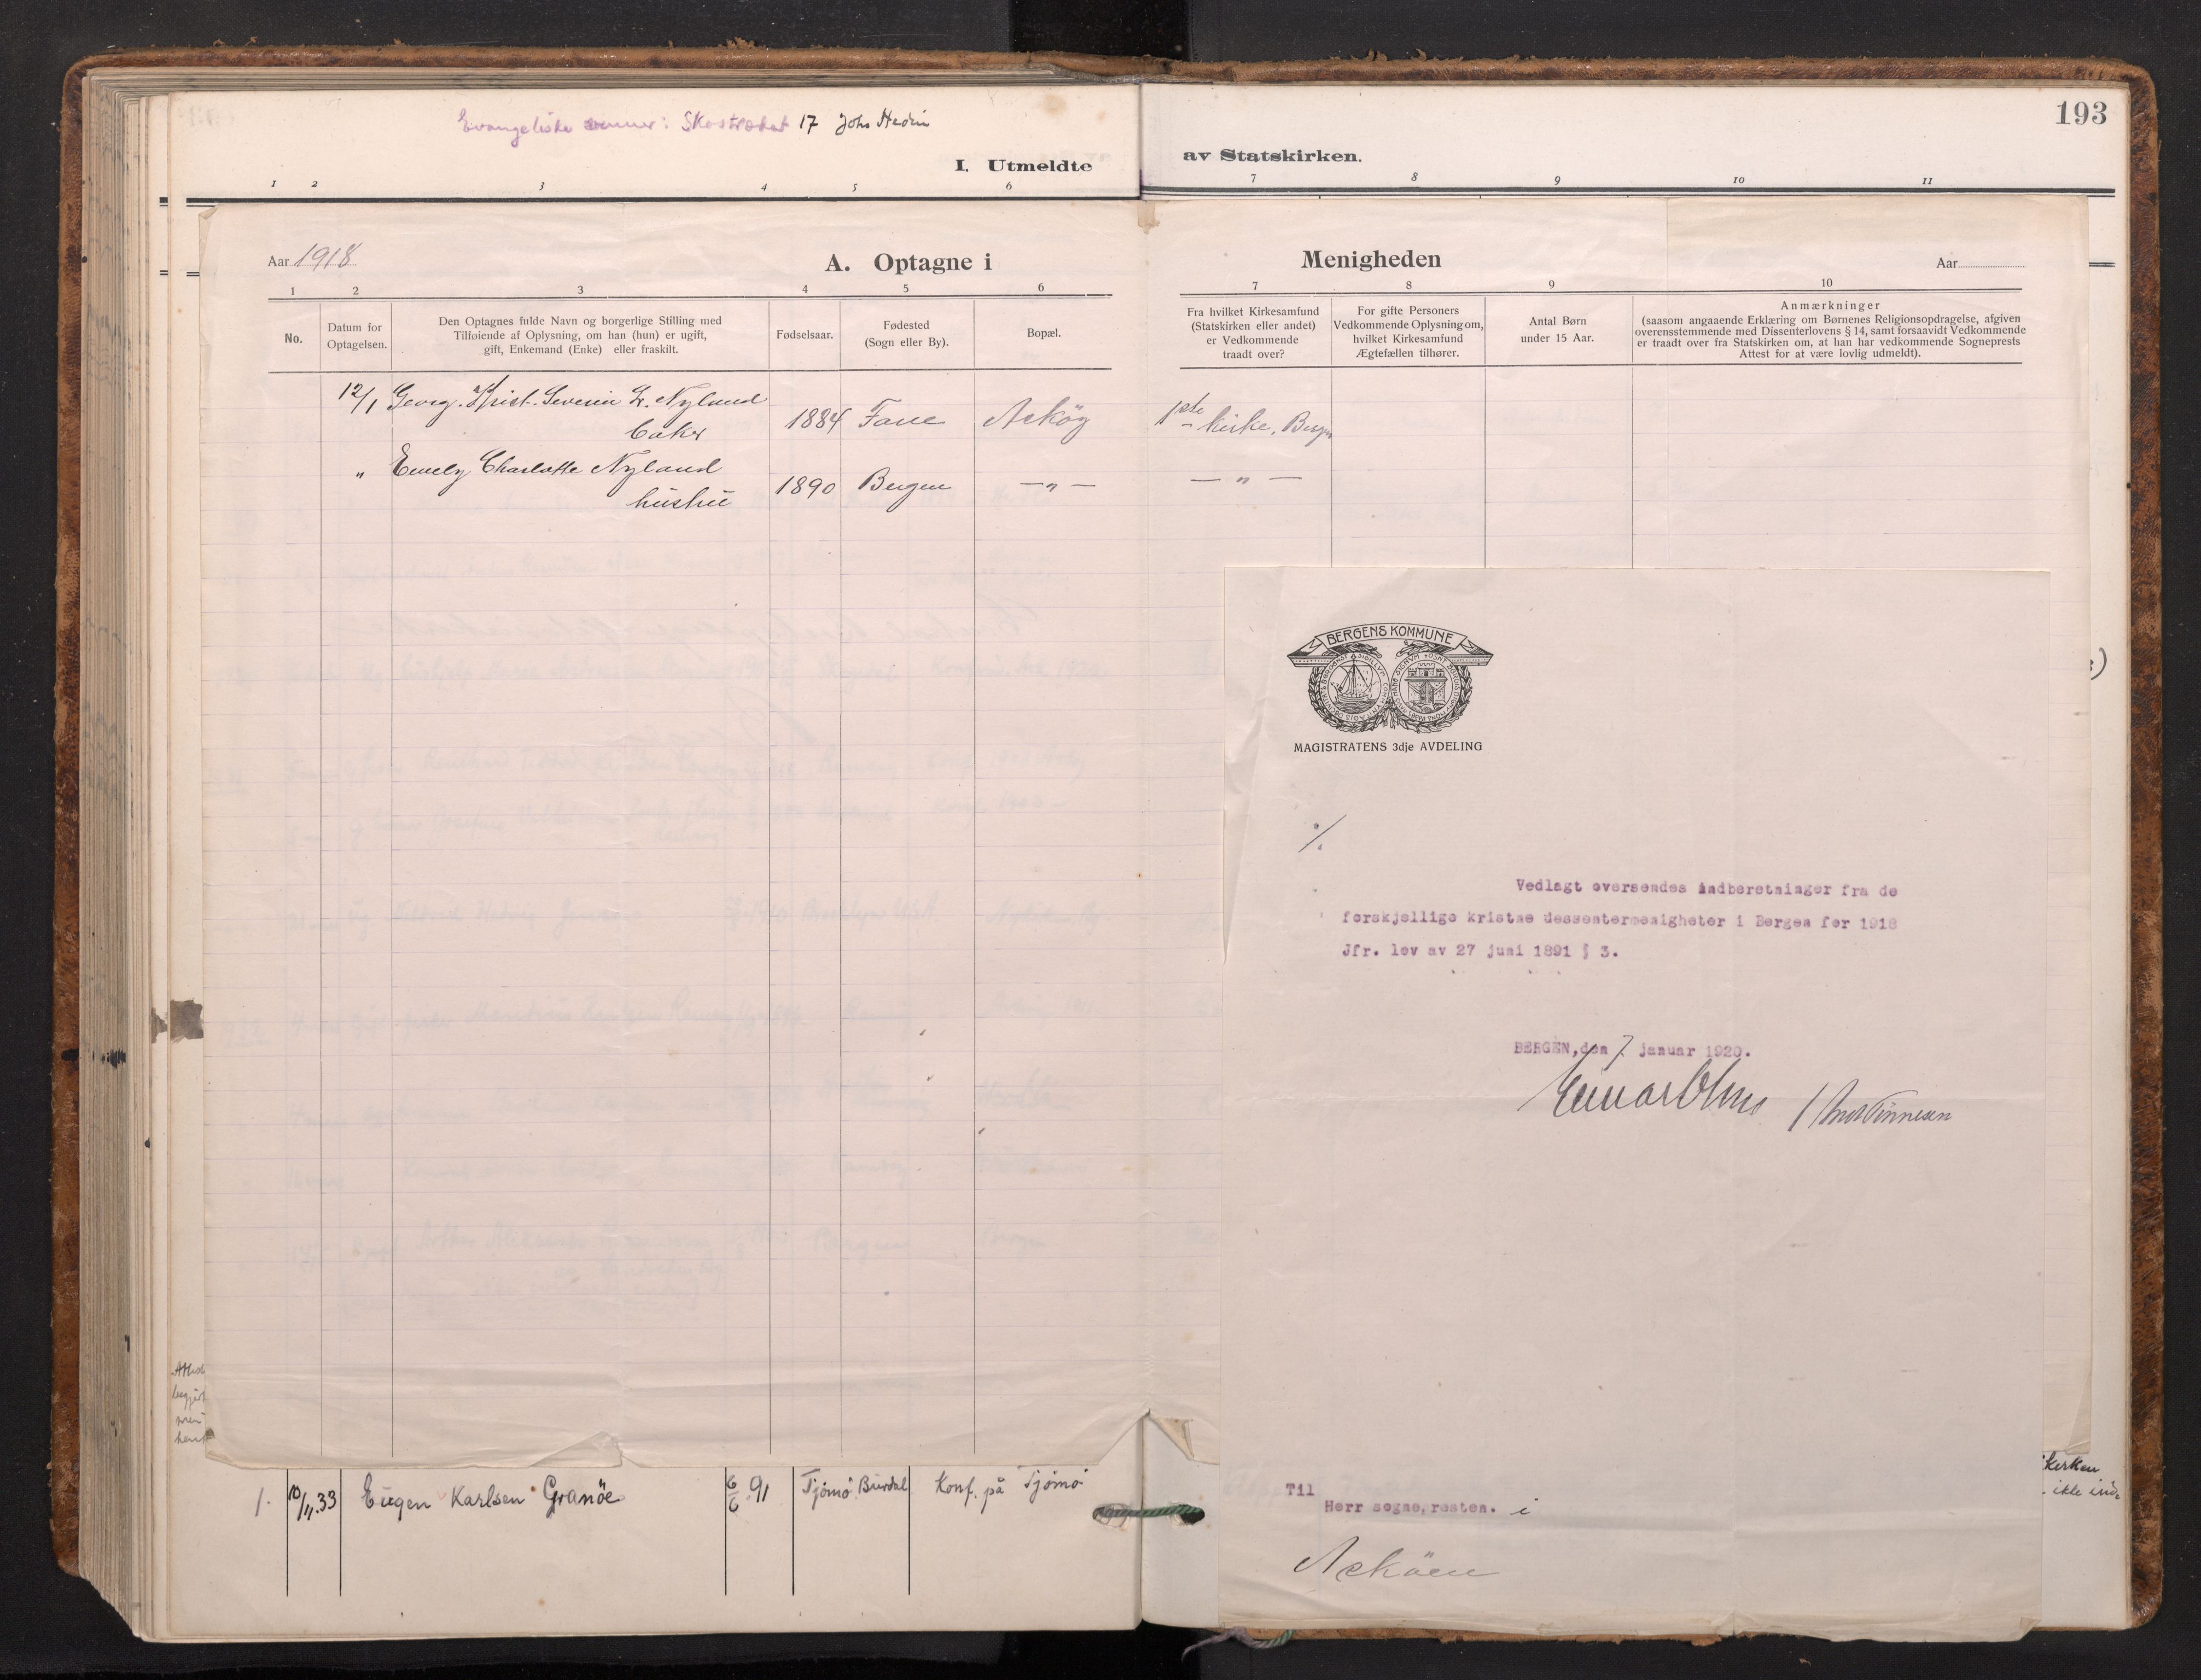 193
Evangeliske venner: Skostrædet 17 Johs Hedin
I. Utmeldte av Statskirken.
1 2 3 4 5 6 7 8 9 10 11
Aar 1918
A. Optagne i Menigheden
Aar
1 2 3 4 5 6 7 8 9 10
No.
Datum for
Optagelsen.
Den Optagnes fulde Navn og borgerlige Stilling med
Tilføiende af Oplysning, om han (hun) er ugift,
gift, Enkemand (Enke) eller fraskilt.
Fødselsaar.
Fødested
(Sogn eller By).
Bopæl.
Fra hvilket Kirkesamfund
(Statskirken eller andet)
er Vedkommende
traadt over?
For gifte Personers
Vedkommende Oplysning om,
hvilket Kirkesamfund
Ægtefællen tilhører.
Antal Børn
under 15 Aar.
Anmærkninger
(saasom angaaende Erklæring om Børnenes Religionsopdragelse, afgiven
overensstemmende med Dissenterlovens § 14, samt forsaavidt Vedkommende
er traadt over fra Statskirken om, at han har vedkommende Sogneprests
Attest for at være lovlig udmeldt).
12/1 Georg. Krist. Severin L. Nyland
baker 1884 Fane Askøy 1ste kirke, Bergen
" Emely Charlotte Nyland
hustru 1890 Bergen —"— —"—
BERGENS KOMMUNE
MAGISTRATENS 3dje AVDELING
%.
Vedlagt oversendes indberetninger fra de
forskjellige kristne dessentermenigheter i Bergen for 1918
Jfr. lov av 27 juni 1891 § 3.
BERGEN, den 7 januar 1920.
Til
Herr sogne,resten. i
Askøen
1. 10/11.33 Eugen Karlsen Granöe 6/6.91 Tjømø Konf. på Tjømö
kirken
ikke